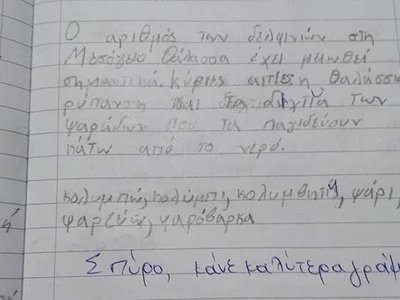 Ο αριθμός των δελφινιών στη
Μεσόγειο θάλασσα έχει μειωθεί
σημαντικά. Κύριες αιτίες η θαλάσσια
ρύπανση και τα δίχτυα των
ψαράδων που τα παγιδεύουν
κάτω από το νερό.
κολυμπώ, κολύμπι, κολυμβητή, ψάρι,
ψαρεύω, ψαρόβαρκα
Σπύρο, κάνε καλύτερα γράμ